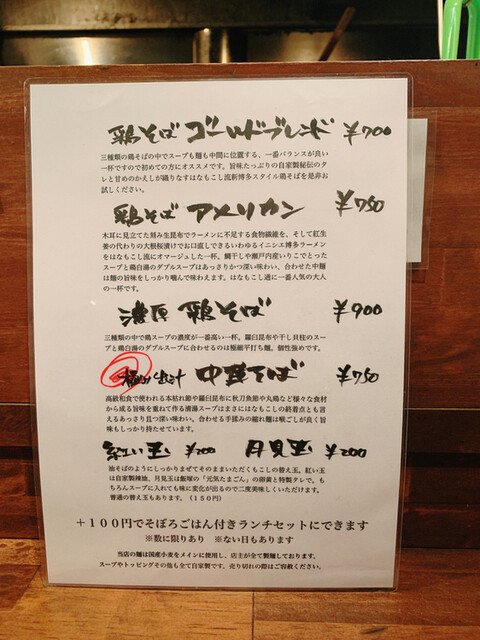 鶏そば ゴールドブレンド ¥700
三種類の鶏そばの中でスープも麺も中間に位置する、一番バランスが良い
一杯ですので初めての方にオススメです。旨味たっぷりの自家製秘伝のタ
レと甘めのかえしが織りなすはなもこし流新博多スタイル鶏そばを是非お
試しください。
鶏そば アメリカン ¥750
木耳に見立てた刻み生昆布でラーメンに不足する食物繊維を、そして紅生
姜の代わりの大根桜漬けでお口直しできるいわゆるイニシエ博多ラーメン
をはなもこし流にオマージュした一杯。鯛干しや瀬戸内産いりこでとった
スープと鶏白湯のダブルスープはあっさりかつ深い味わい、合わせた中麺
は麺の旨味をしっかり噛んで味わえます。はなもこし通に一番人気の大人
の一杯です。
濃厚 鶏そば ¥900
三種類の中で鶏スープの濃度が一番高い一杯。羅臼昆布や干し貝柱のスー
プと鶏白湯のダブルスープに合わせるのは極細平打ち麺。個性強めです。
中華そば ¥750
高級和食で使われる本枯れ節や羅臼昆布に秋刀魚節や丸鶏など様々な食材
から成る旨味を重ねて作る清湯スープはまさにはなもこしの終着点とも言
えるあっさり且つ深い味わい。合わせる手揉みの縮れ麺は喉ごしが良く旨
味もしっかり持たせています。
紅い玉 ¥200 月見玉 ¥200
油そばのようにしっかりまぜてそのままいただくもこしの替え玉。紅い玉
は自家製辣油、月見玉は飯塚の「元気たまごん」の卵黄と特製タレで。も
ちろんスープに入れても味に変化が出るので二度美味しくいただけます。
普通の替え玉もあります。（１５０円）
＋１００円でそぼろごはん付きランチセットにできます
※数に限りあり ※ない日もあります
当店の麺は国産小麦をメインに使用し、店主が全て製麺しております。
スープやトッピングその他も全て自家製です。売り切れの際はご容赦ください。